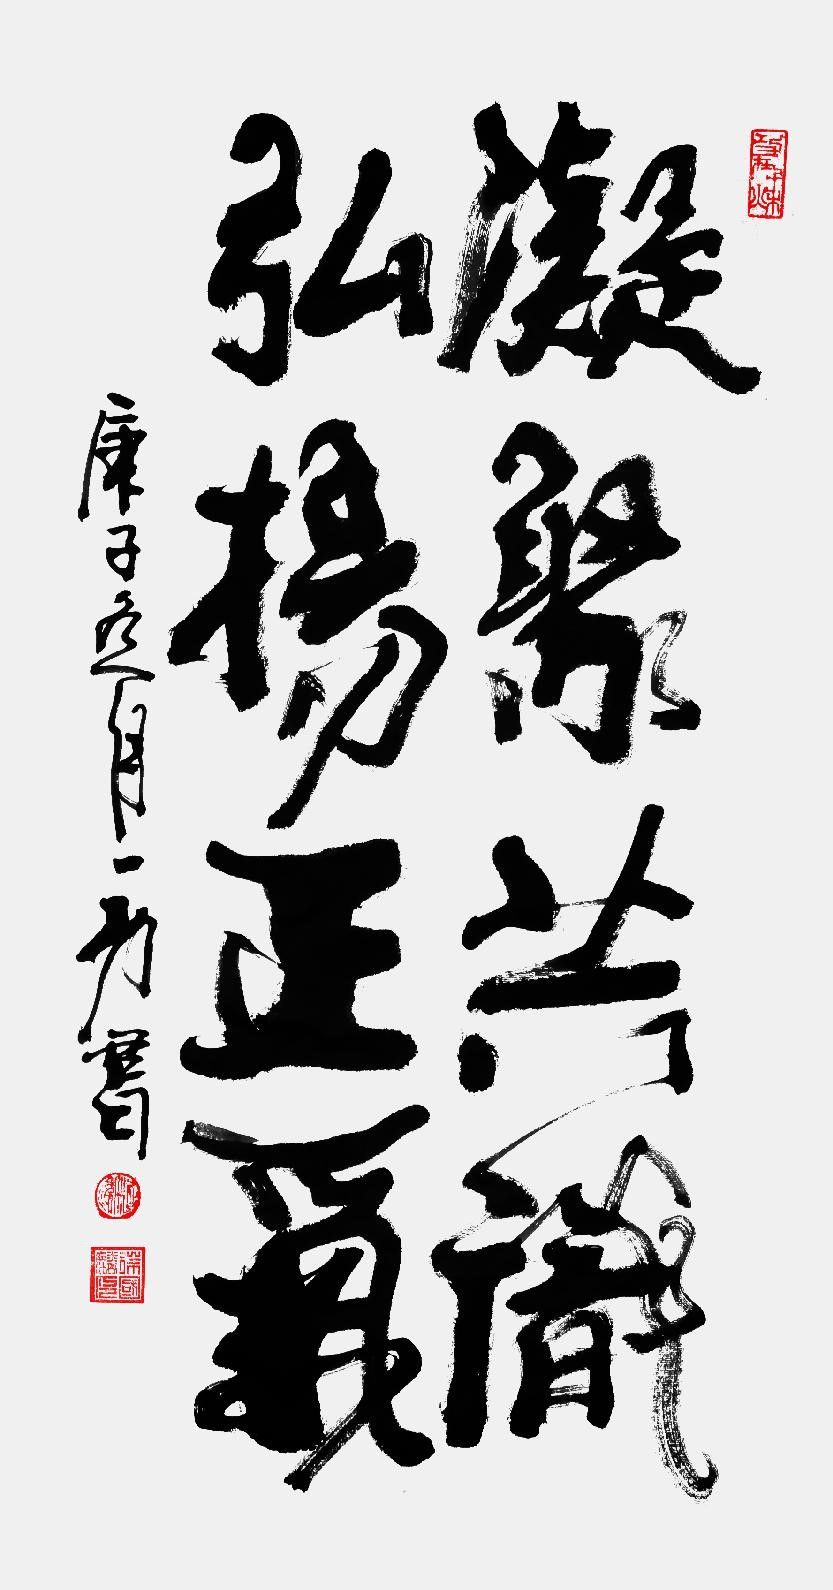 凝聚共識
弘揚正義
庚子春月一舟書